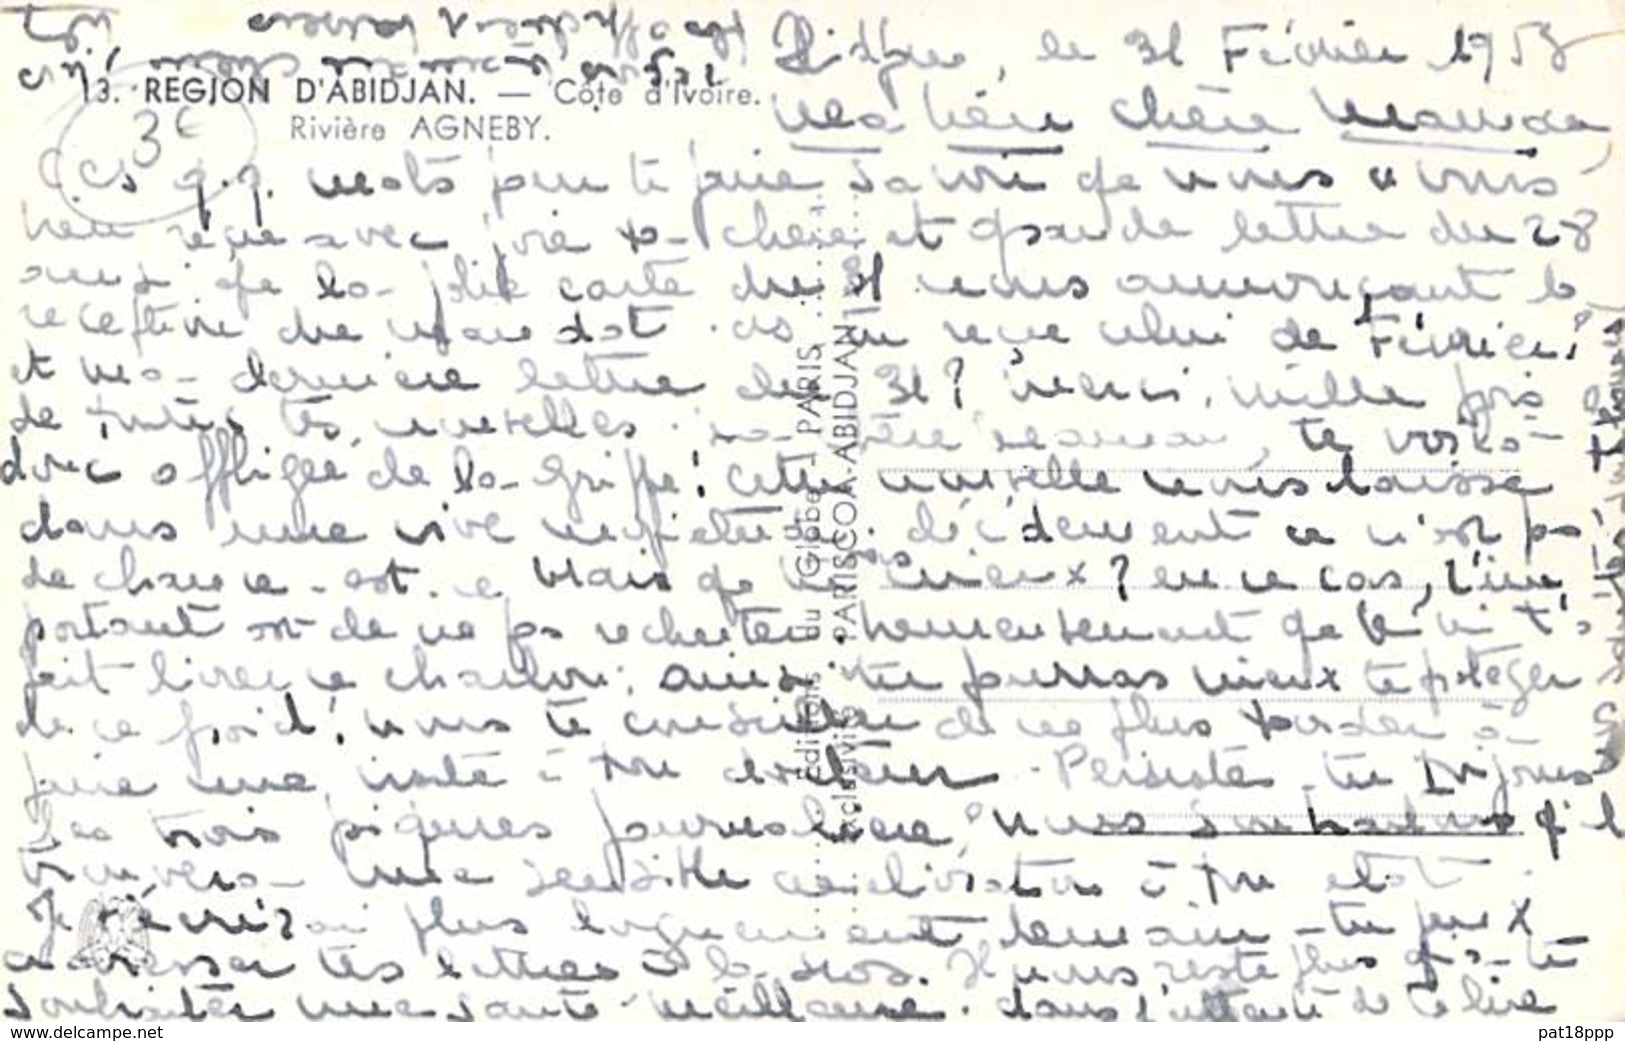 13. REGION D'ABIDJAN. — Côte d'Ivoire.
Rivière AGNEBY.
3€
le 31 Février 1953
Ma bien chère Maman
Ces q.q. mots pour te faire savoir que nous avons
bien reçu avec joie ta chère et grande lettre du 28
ainsi que la jolie carte du 31 nous annonçant la
réception du mandat. as tu reçu celui de Février?
et ma dernière lettre du 31? merci, mille fois
de toutes tes nouvelles. ma chère maman, te voilà
donc affligée de la grippe! cette nouvelle nous laisse
dans une vive inquiétude. décidément ce n'est pas
de chance. est-ce vrais que tu vas mieux? en ce cas, l'im
portant est de ne pas rechuter. heureusement que l'on t'a
fait livrer ce charbon; ainsi tu pourras mieux te protéger
de ce froid! nous te conseillons de ne plus tarder à
faire une visite à ton docteur. Persiste-tu toujours
les trois piqures journalière? nous souhaitons qu'il
trouvera une sensible amélioration à ton état.
Je t'écrirai plus longuement demain - tu peux
adresser tes lettres à la Il nous reste plus qu'a te
souhaiter une santé meilleure. dans l'attente de te lire
Editions du Globe - PARIS
Exclusivité PARISCOA-ABIDJAN
www.delcampe.net
pat18ppp